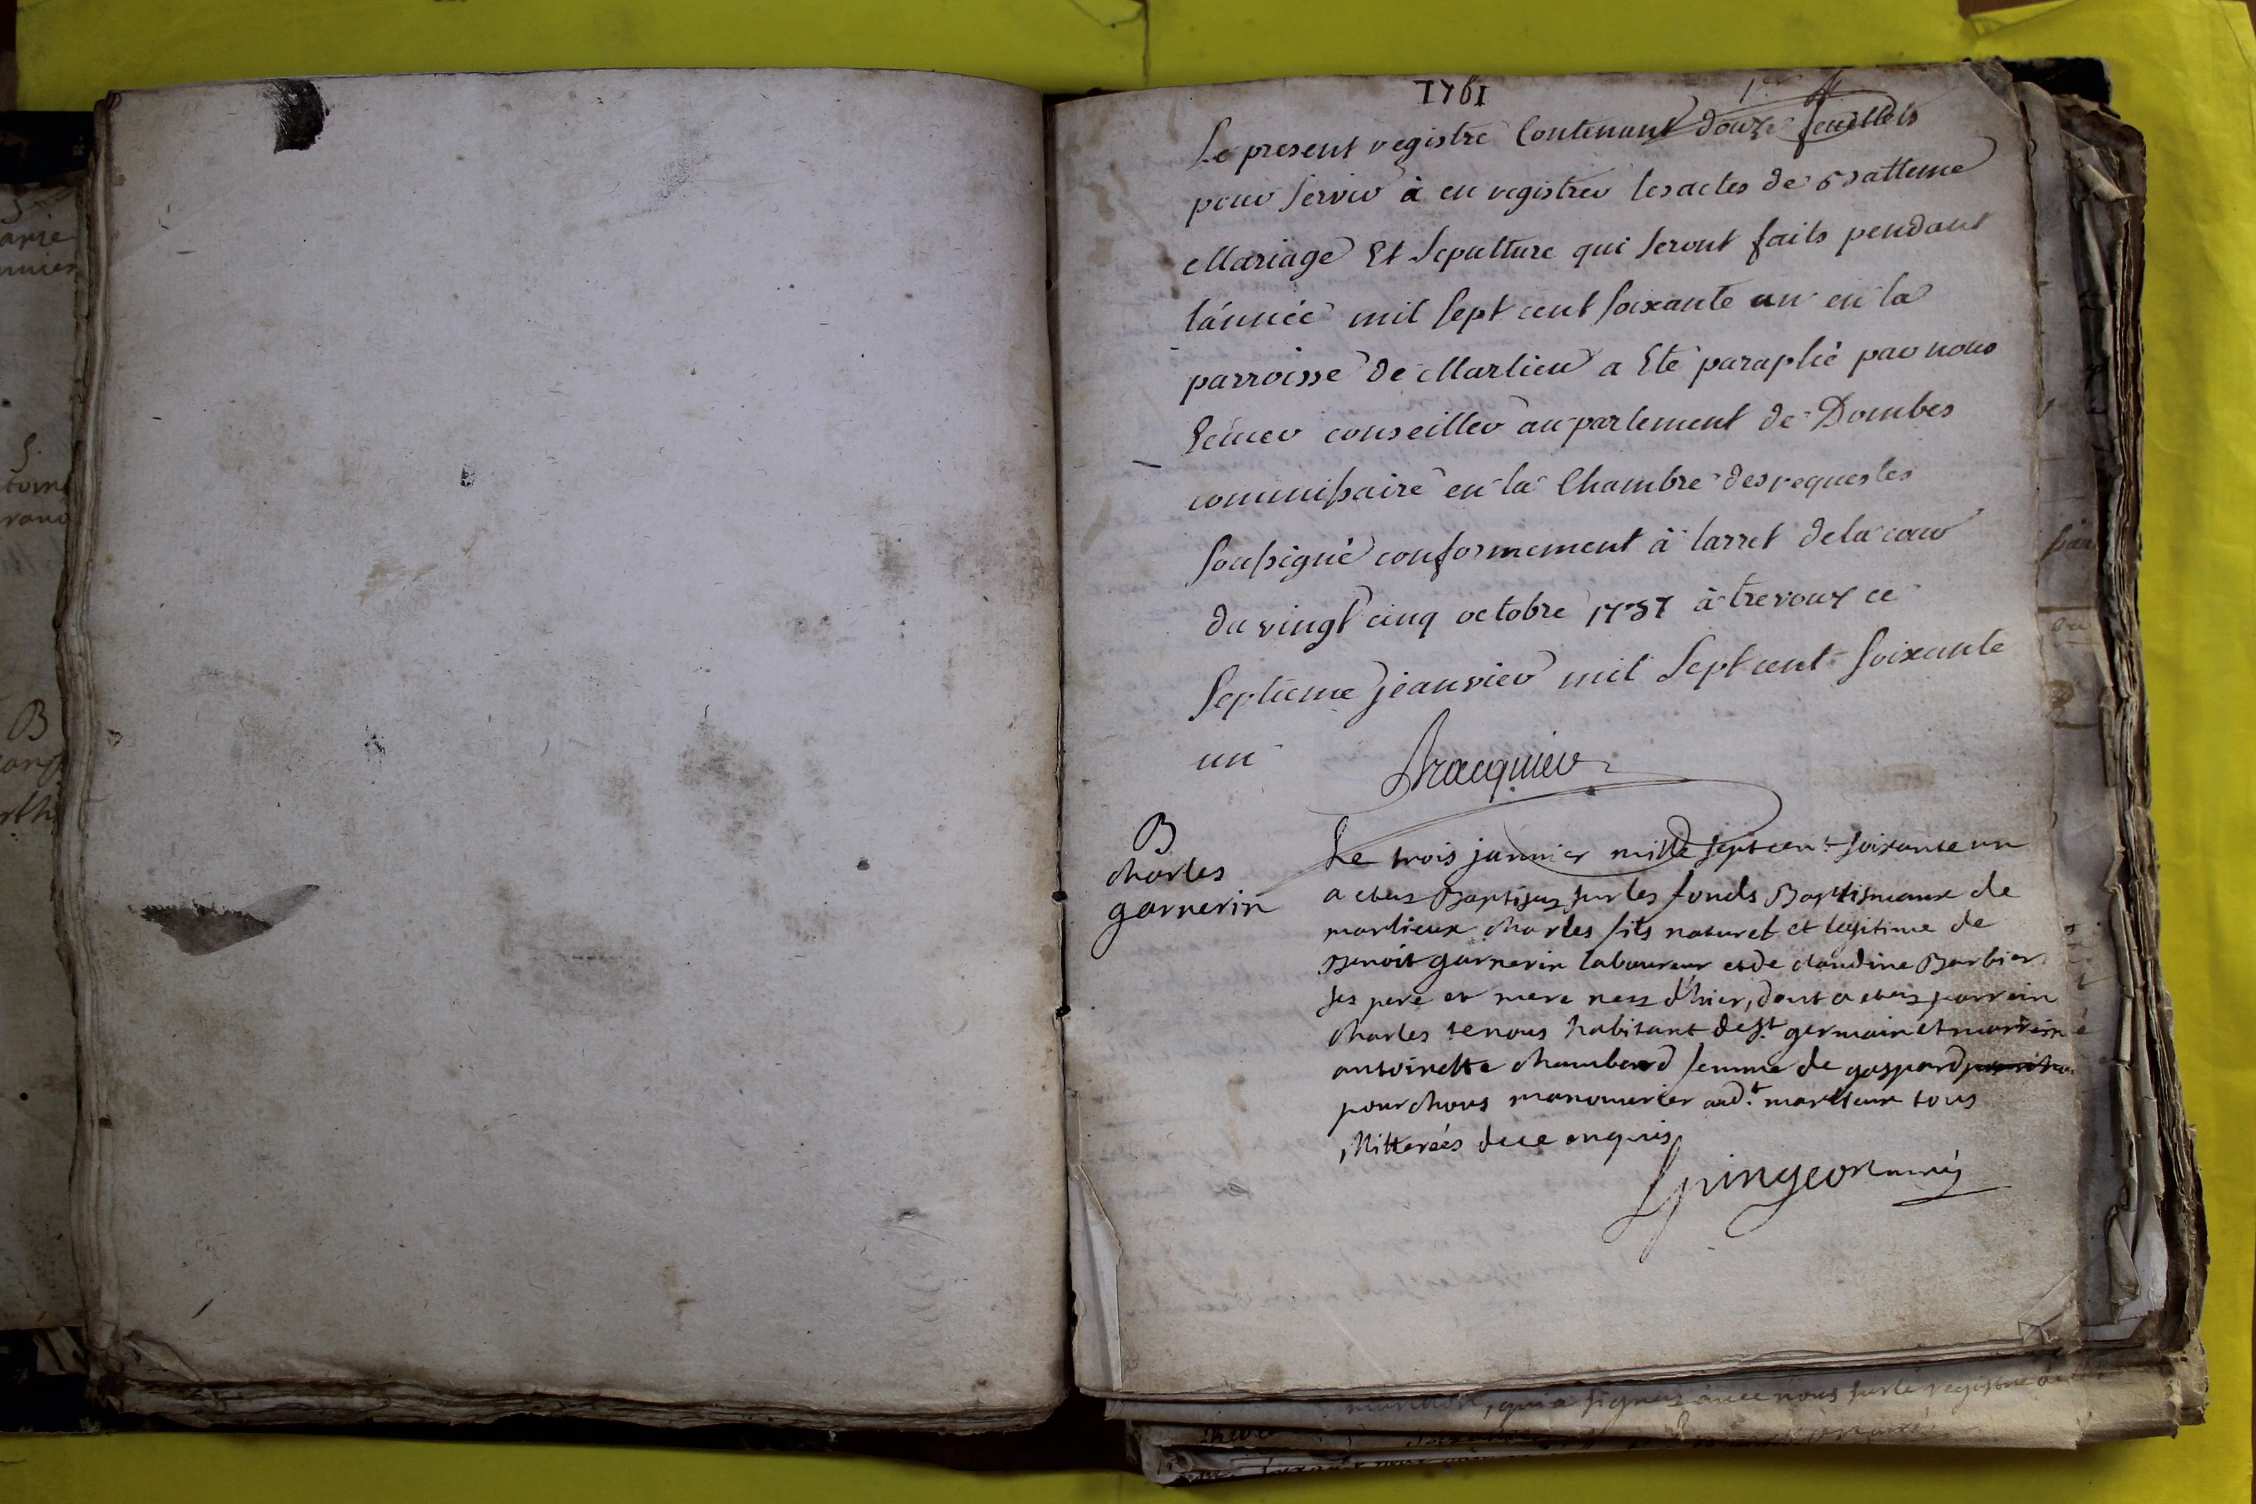 arie
S
B
1761
1er
Le present registre Contenant douze feuillets
pour servir à en registrer les actes de Batteme
Mariage Et Sepulture qui seront faits pendant
l'année mil sept cent soixante un en la
parroisse de Marlieu a Eté paraphé par nous
Ecuier conseiller au parlement de Dombes
commissaire en la Chambre des requestes
soussigné conformement à larret de la cour
du vingt cinq octobre 1737 à trevoux ce
septieme jeanvier mil sept cent soixante
un
B
charles
garnerin
Le trois janvier mille sept cent soixante un
a etez Baptisez sur les fonds Baptismaux de
marlieux charles fils naturel et legitime de
Benoit garnerin laboureur et de claudine Barbier
ses pere et mere nez d'hier, dont a etez parrein
charles tenous habitant de st germain et marreine
antoinette chambard femme de gaspard
pourchous manouvrier aud.t marlieux tous
illitterés de ce enquis
Spingeon curé
qui a signez avec nous sur le registre